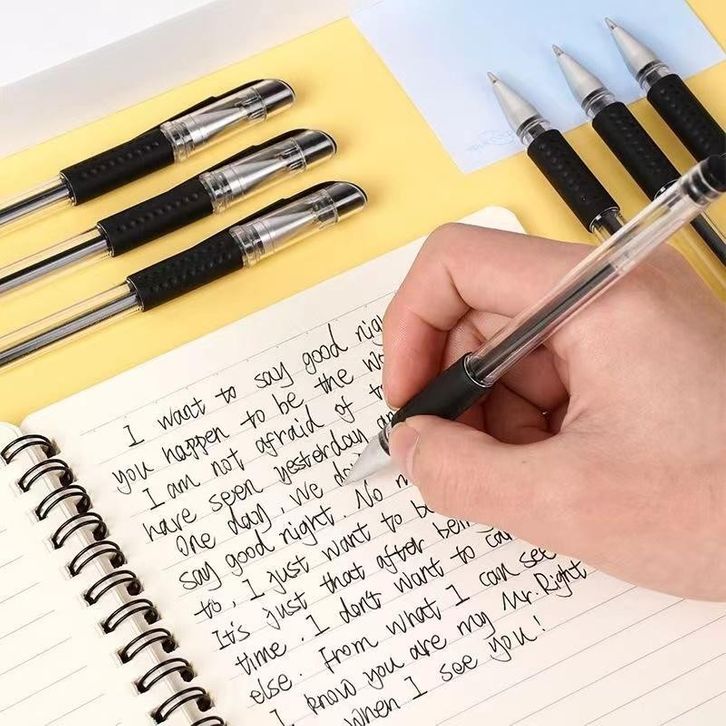 I want to say good nig
you happen to be the wo
I am not afraid of t
have seen yesterday an
One day, we do
say good night. No m
to, I just want to b
It's just that after bein
time. I don't want to ca
else. From what I can see
I know you are my Mr.Right
when I see you!